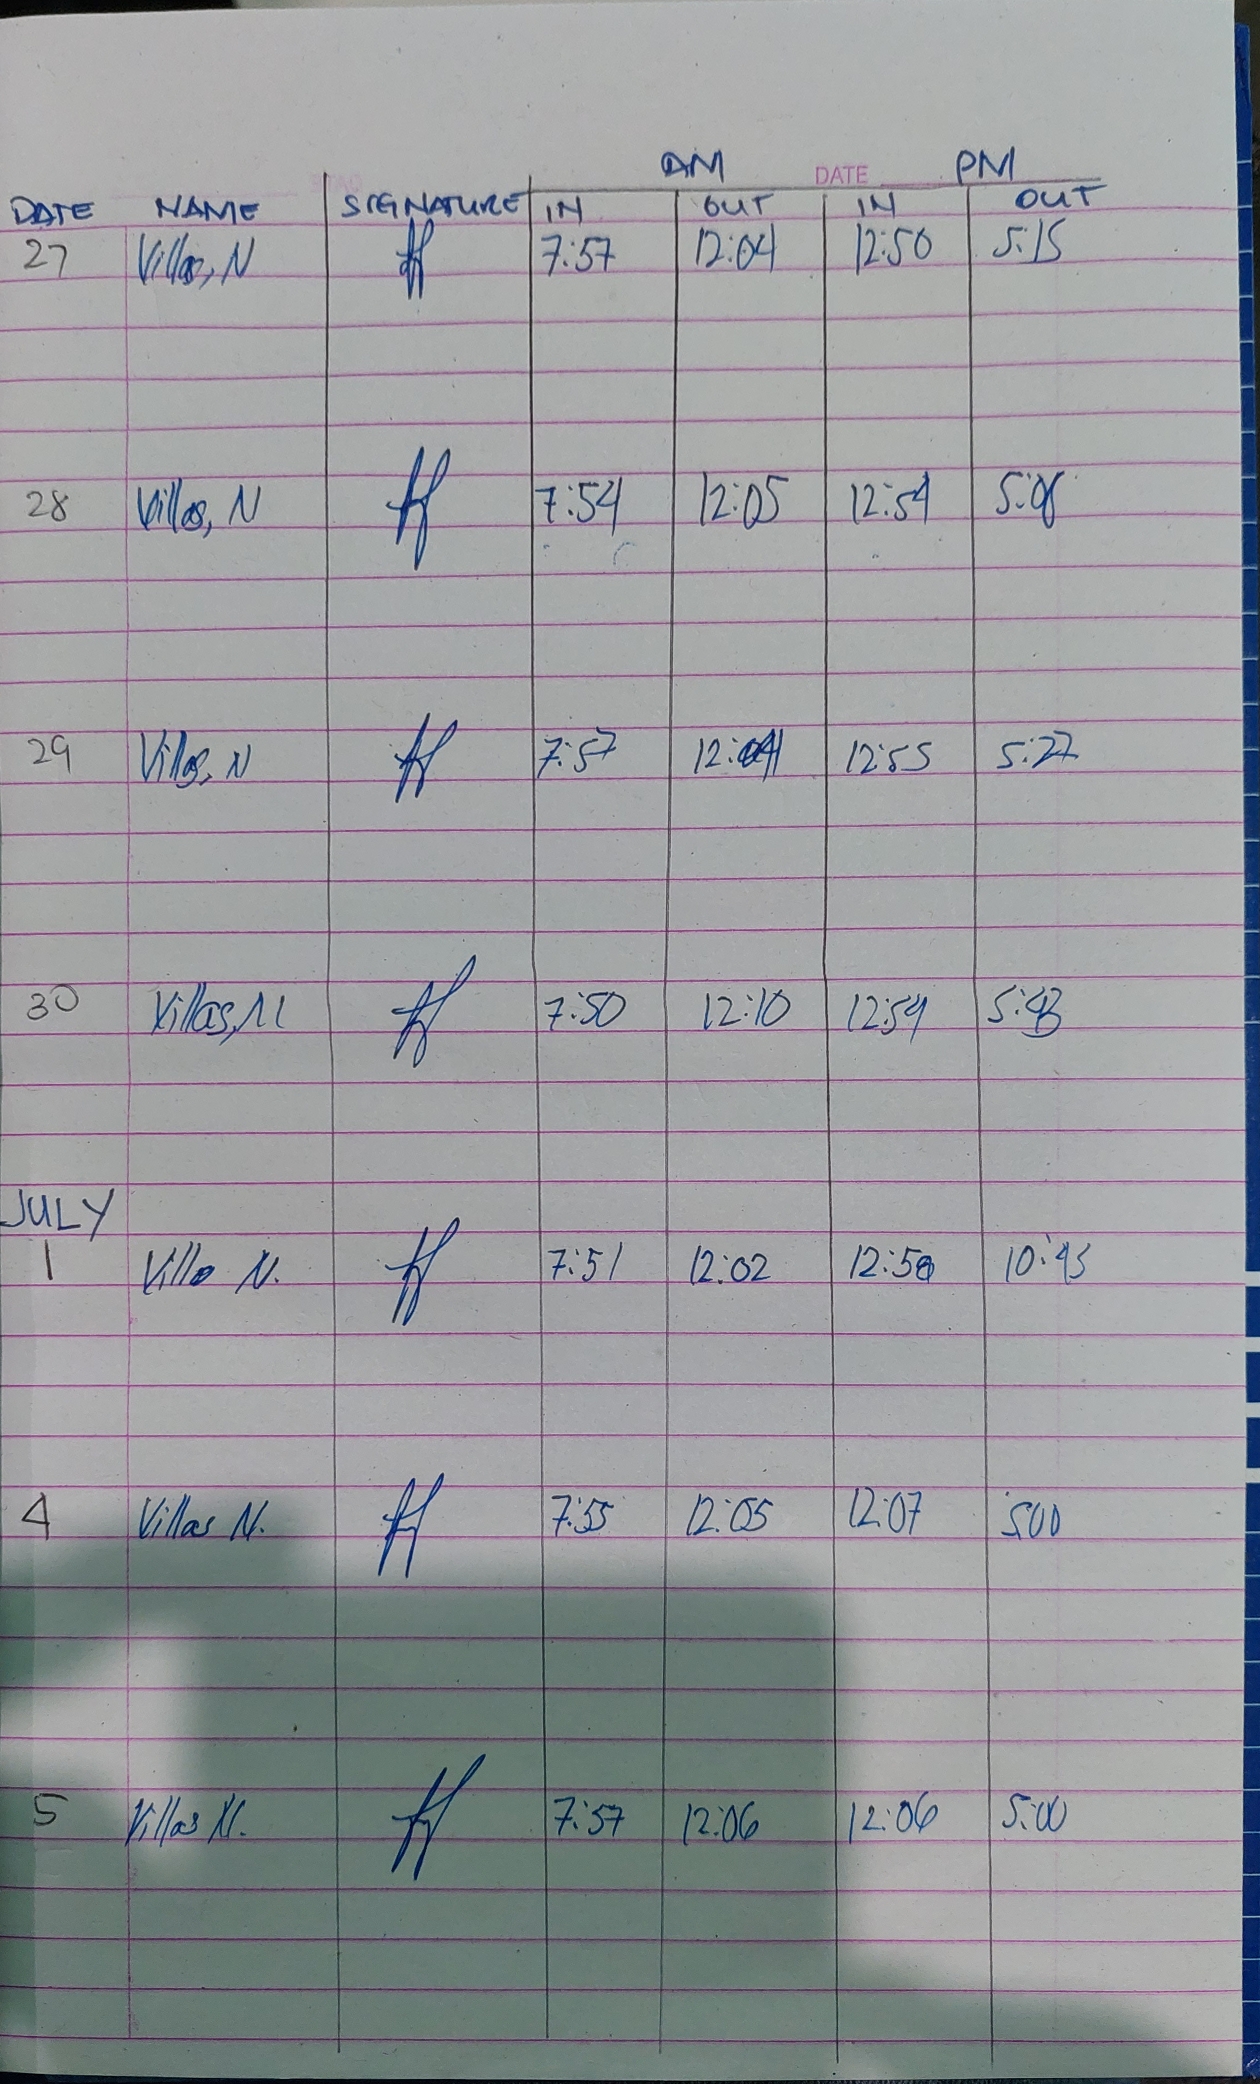 AM DATE PM
DATE NAME SIGNATURE IN OUT IN OUT
27 Villas, N 7:57 12:04 12:50 5:15
28 Villas, N 7:54 12:05 12:54 5:08
29 Villas, N 7:57 12:55 5:27
30 Villas, N 7:50 12:10 12:54
JULY
1 Villa N. 7:51 12:02 12:50 10:45
4 Villas N. 7:55 12:05 12:07 5:00
5 Villas N. 7:57 12:06 12:06 5:00